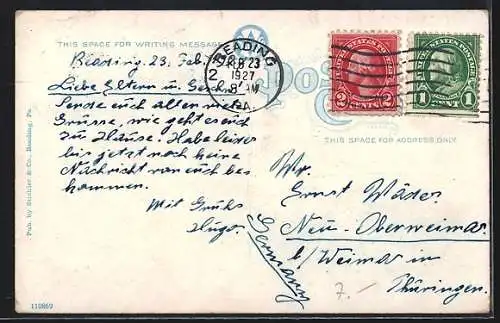 THIS SPACE FOR WRITING MESSAGE
POS
Reading, 23. Feb.
READING
FEB 23
2
1927
8 AM
PA.
UNITED STATES POSTAGE
2 CENTS 2
UNITED STATES POSTAGE
1 CENT 1
Liebe Eltern u. Geschw.
Sende euch allen viele
Grüsse, wie geht es euch
zu Hause. Habe leider
bis jetzt noch keine
Nachricht von euch be-
kommen.
Mit Gruhs
Hugo.
THIS SPACE FOR ADDRESS ONLY
Mr.
Ernst Wäder
Neu-Oberweimar
b/ Weimar in
Thüringen.
Germany
7.-
Pub. by Steckler & Co., Reading, Pa.
110869